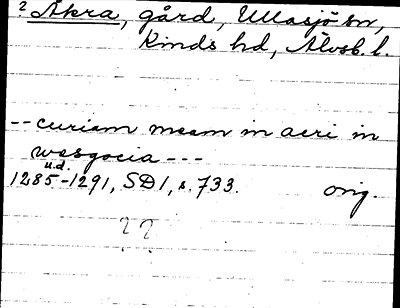 ? Åkra, gård, Ullasjö sn,
Kinds hd, Älvsb. l.
-- curiam meam in acri in
wesgocia ---
u.d.
1285-1291, SD 1, s. 733. orig.
? ?